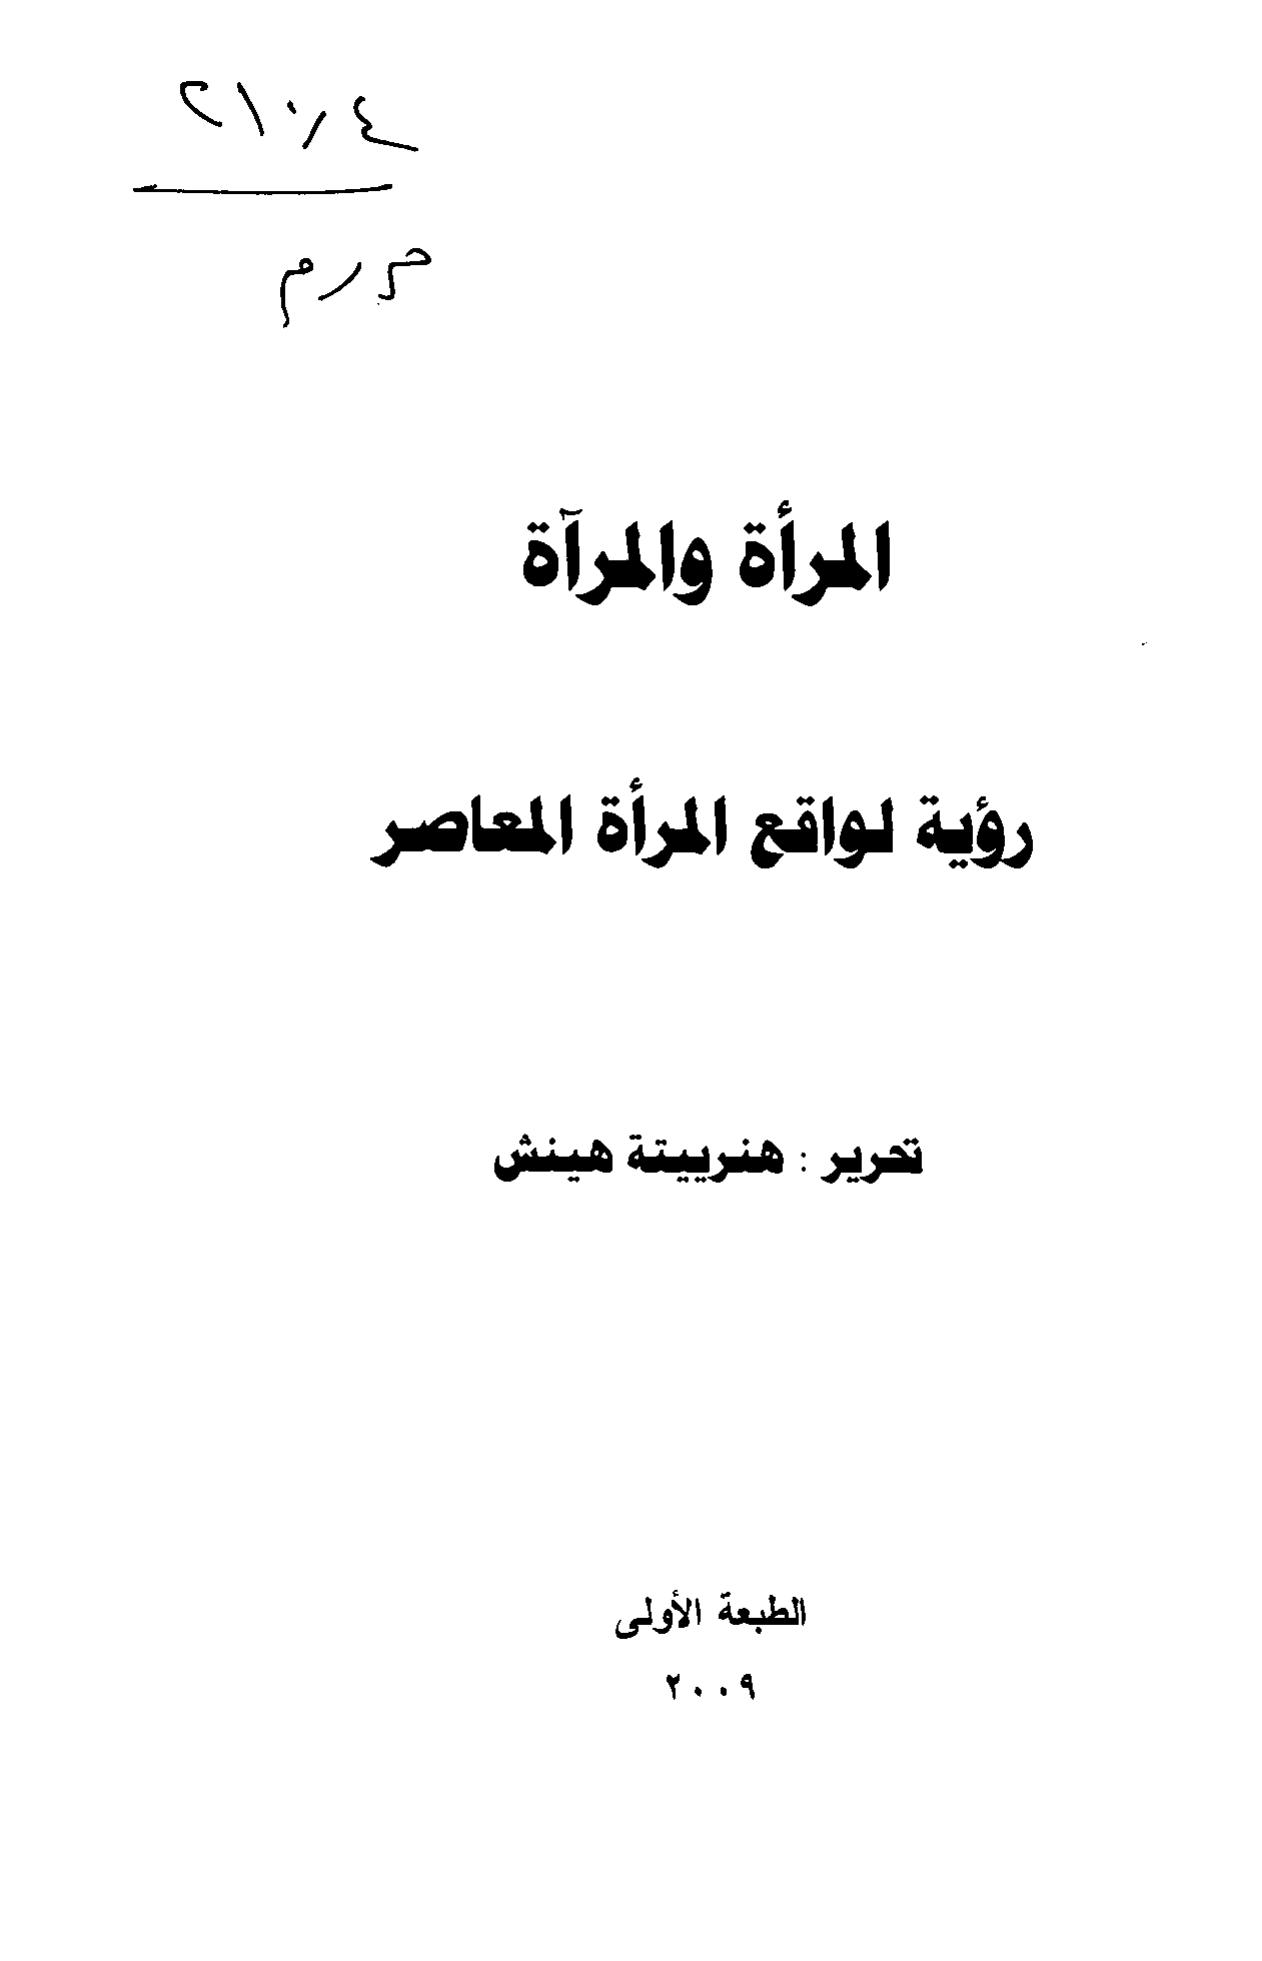 المرأة والمرآة
رؤية لواقع المرأة المعاصر
تحرير : هنرييتة هينش
الطبعة الأولى
٢٠٠٩